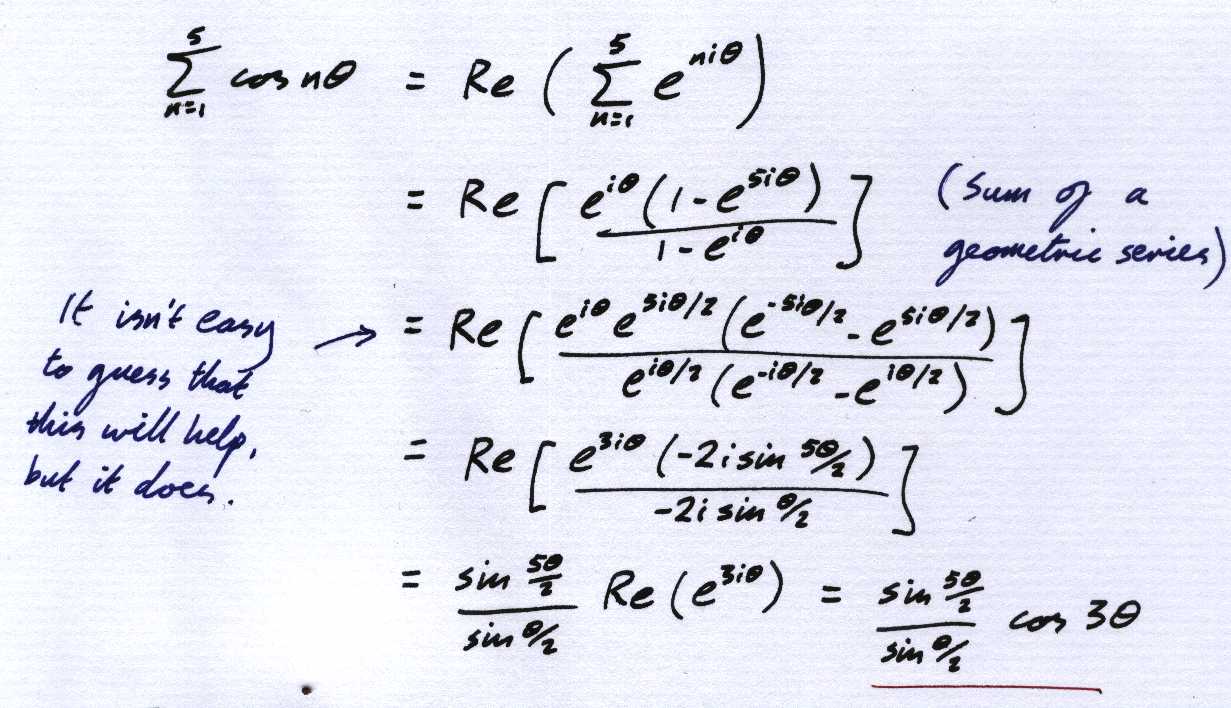 \sum_{n=1}^{5} cos nθ = Re ( \sum_{n=1}^{5} e^{niθ} )
= Re [ \frac{e^{iθ} (1 - e^{5iθ})}{1 - e^{iθ}} ] (Sum of a
geometric series)
It isn't easy
to guess that
this will help,
but it does.
→ = Re [ \frac{e^{iθ} e^{5iθ/2} (e^{-5iθ/2} - e^{5iθ/2})}{e^{iθ/2} (e^{-iθ/2} - e^{iθ/2})} ]
= Re [ \frac{e^{3iθ} (-2i sin 5θ/2)}{-2i sin θ/2} ]
= \frac{sin \frac{5θ}{2}}{sin θ/2} Re (e^{3iθ}) = \frac{sin \frac{5θ}{2}}{sin θ/2} cos 3θ